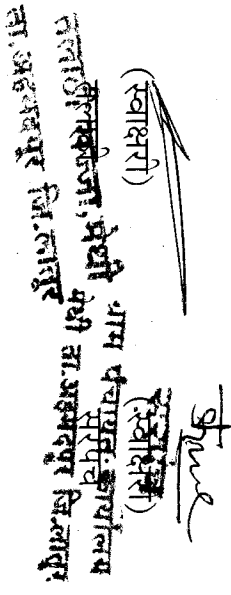 (स्वाक्षरी)
तलाठी
ता.अहमदपूर जि.लातूर
(स्वाक्षरी)
सरपंच
ग्राम पंचायत कार्यालय
ता.अहमदपूर जि.लातूर.